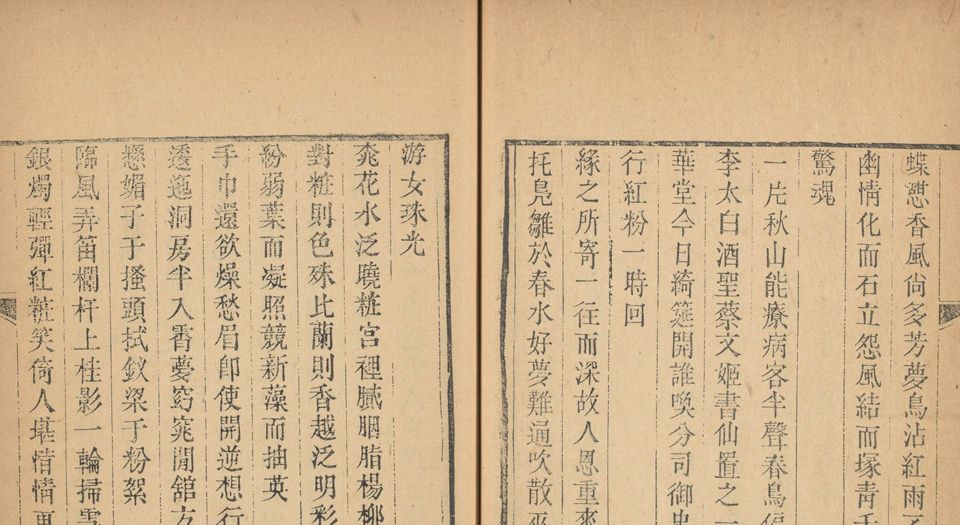 蝶愬香風尙多芳夢鳥沾紅雨
幽情化而石立怨風結而塚靑
驚魂
一片秋山能療病客半聲春鳥
李太白酒聖蔡文姬書仙置之一
華堂今日綺筵開誰喚分司御史
行紅粉一時回
緣之所寄一往而深故人恩重來
托鳧雛於春水好夢難通吹散
游女珠光
窕花水泛曉粧宮裡膩胭脂楊柳
對粧則色殊比蘭則香越泛明彩
紛弱葉而凝照競新藻而抽英
手巾還欲燥愁眉卽使開逆想行
透迤洞房半入霄夢窈窕閒舘方
懸媚子于搔頭拭釵梁于粉絮
臨風弄笛欄杆上桂影一輪掃雪
銀燭輕彈紅粧笑倚人堪情情更